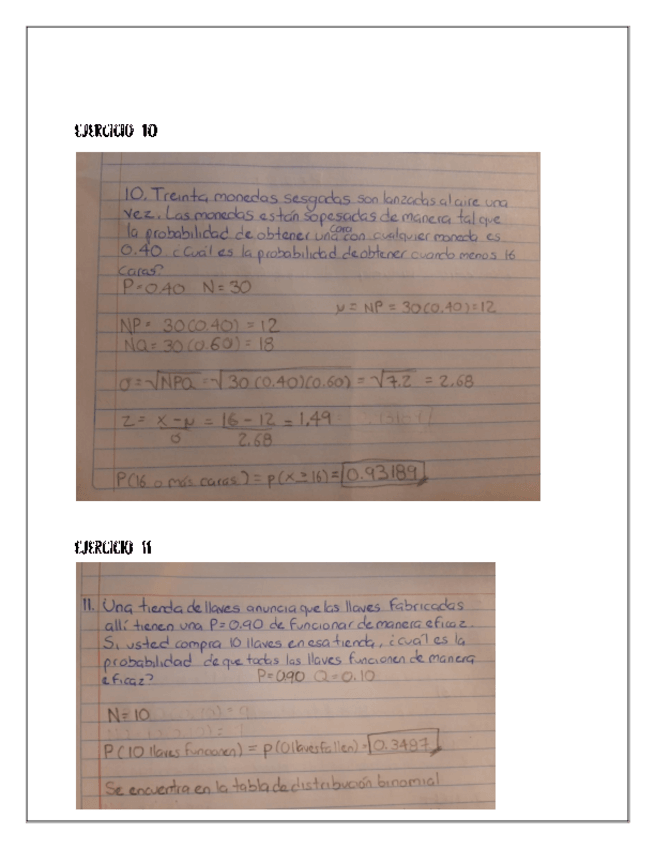 EJERCICIO 10
10. Treinta monedas sesgadas son lanzadas al aire una
vez. Las monedas están sopesadas de manera tal que
la probabilidad de obtener una cara con cualquier moneda es
0.40 ¿Cuál es la probabilidad de obtener cuando menos 16
caras?
P=0.40 N=30
μ = NP = 30(0.40)=12
NP= 30(0.40) = 12
NQ= 30(0.60) = 18
σ=√NPQ =√30(0.40)(0.60) = √7.2 = 2.68
z = x-μ = 16-12 = 1.49
σ 2.68
P(16 o más caras) = p(x≥16)= 0.93189
EJERCICIO 11
11. Una tienda de llaves anuncia que las llaves fabricadas
allí tienen una P=0.90 de funcionar de manera eficaz.
Si usted compra 10 llaves en esa tienda, ¿cuál es la
probabilidad de que todas las llaves funcionen de manera
eficaz? P=0.90 Q=0.10
N=10
P(10 llaves funcionen) = p(0 llaves fallen) = 0.3487
Se encuentra en la tabla de distribución binomial